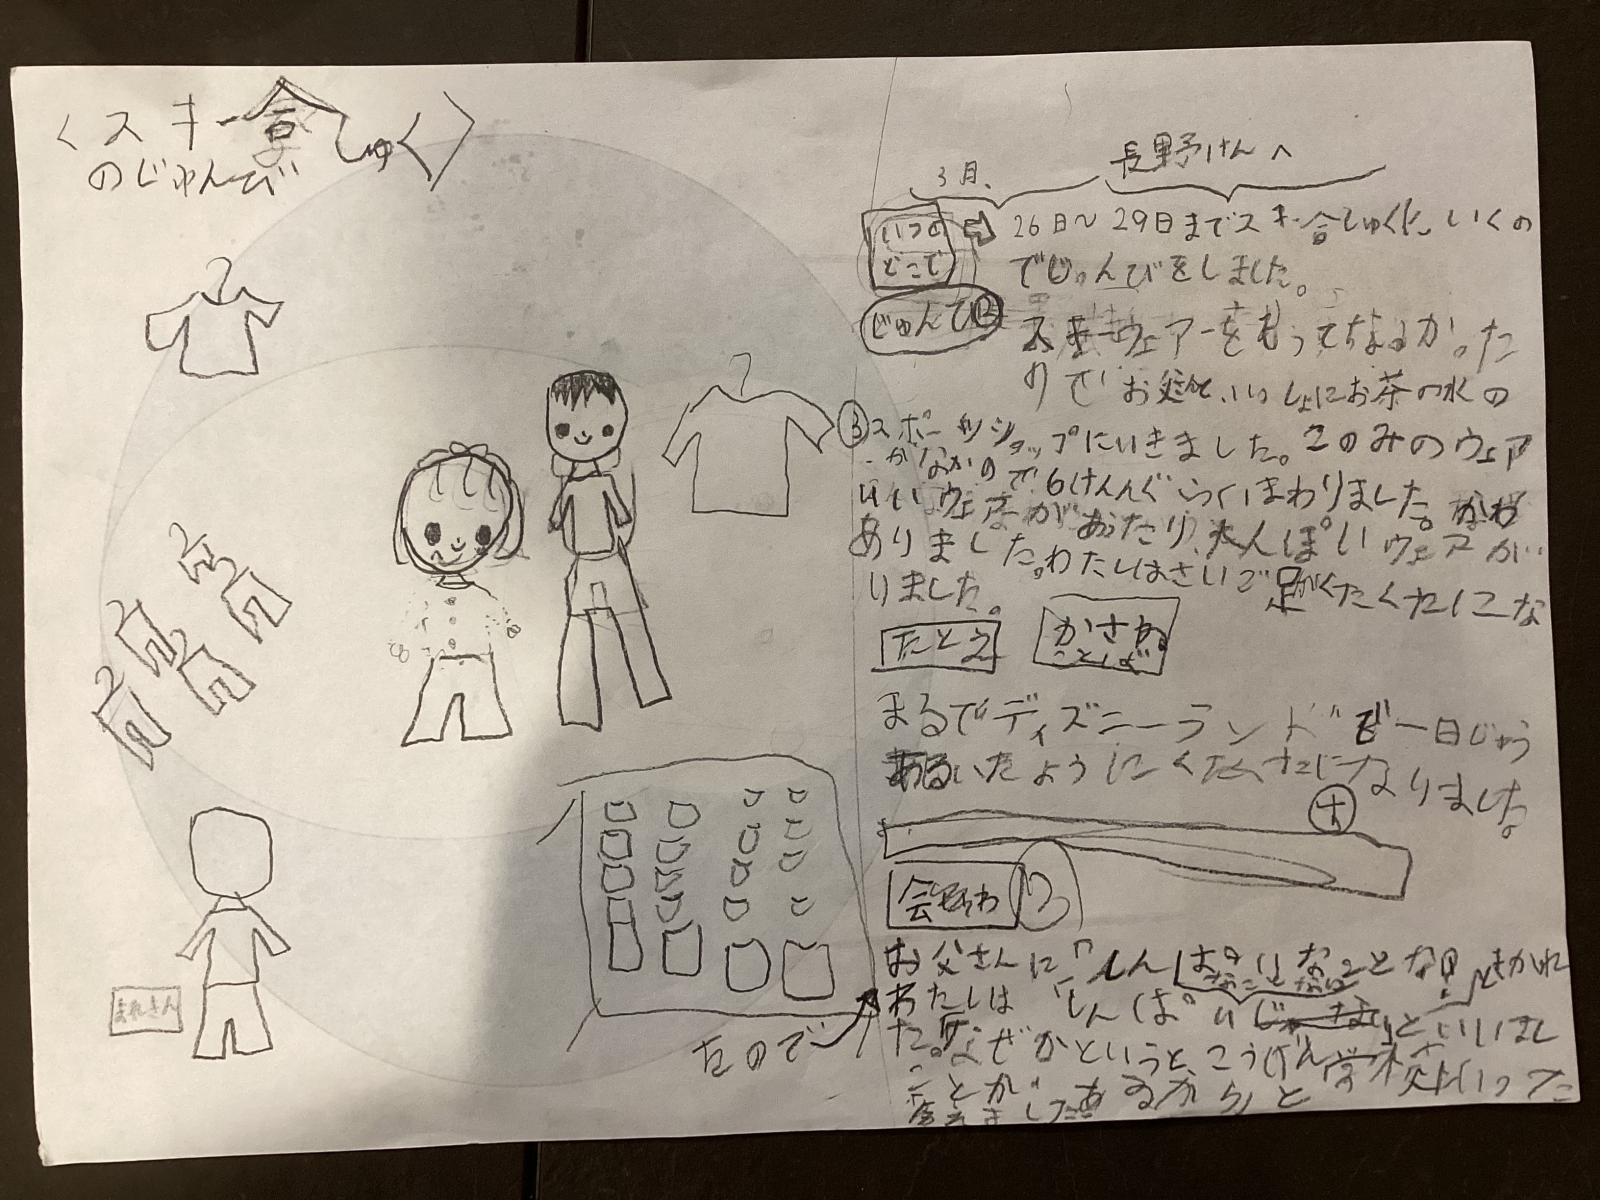 〈スキー合しゅく〉
のじゅんび
3月、
長野けんへ
いつ
どこで
26日〜29日までスキー合しゅくに、いくの
でじゅんびをしました。
じゅんび
スキーウェアーをもって
ので お父さんと、いっしょにお茶の水の
スポーツショップにいきました。このみのウェア
がなかなか
ので6けんぐらいまわりました。
いいウェアーがあったり、大人ぽいウェアが
ありました。わたしはさいご足がくたくたにな
りました。
たとえ
かさね
ことば
まるでディズニーランドで一日じゅう
あるいたようにくたくたになりました。
会わ
お父さんに「しんぱい
わたしは「しんぱい といいまし
た。なぜかというと、こうげん学校にいった
ことがあるから」と
答えました
たので